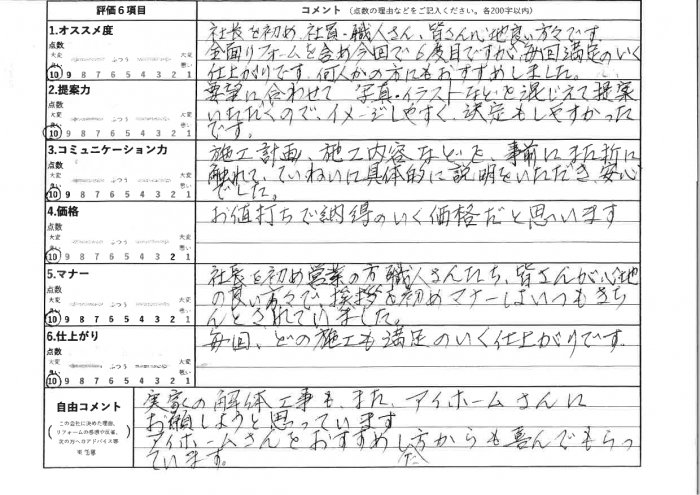 評価６項目
コメント（点数の理由などをご記入ください。各200字以内）
1.オススメ度
点数
大変良い ふつう 大変悪い
10 9 8 7 6 5 4 3 2 1
社長を初め、社員・職人さん、皆さん心地良い方々です。
全面リフォームを含め今回で6度目ですが、毎回満足のいく
仕上がりです。何人かの方にもおすすめしました。
2.提案力
点数
大変良い ふつう 大変悪い
10 9 8 7 6 5 4 3 2 1
要望に合わせて写真・イラストなどを混じえて提案
いただくので、イメージしやすく、決定もしやすかった
です。
3.コミュニケーション力
点数
大変良い ふつう 大変悪い
10 9 8 7 6 5 4 3 2 1
施工計画、施工内容などを、事前にまた折に
触れて、ていねいに具体的に説明をいただき、安心
でした。
4.価格
点数
大変良い ふつう 大変悪い
10 9 8 7 6 5 4 3 2 1
お値打ちで納得のいく価格だと思います
5.マナー
点数
大変良い ふつう 大変悪い
10 9 8 7 6 5 4 3 2 1
社長を初め営業の方職人さんたち、皆さんが心地
の良い方々で、挨拶を初めマナーはいつもきち
んとされていました。
6.仕上がり
点数
大変良い ふつう 大変悪い
10 9 8 7 6 5 4 3 2 1
毎回、どの施工も満足のいく仕上がりです。
自由コメント
この会社に決めた理由、
リフォームの感想や反省、
次の方へのアドバイス等
実家の解体工事も、また、アイホームさんに
お願しようと思っています
アイホームさんをおすすめした方からも喜んでもらっ
ています。